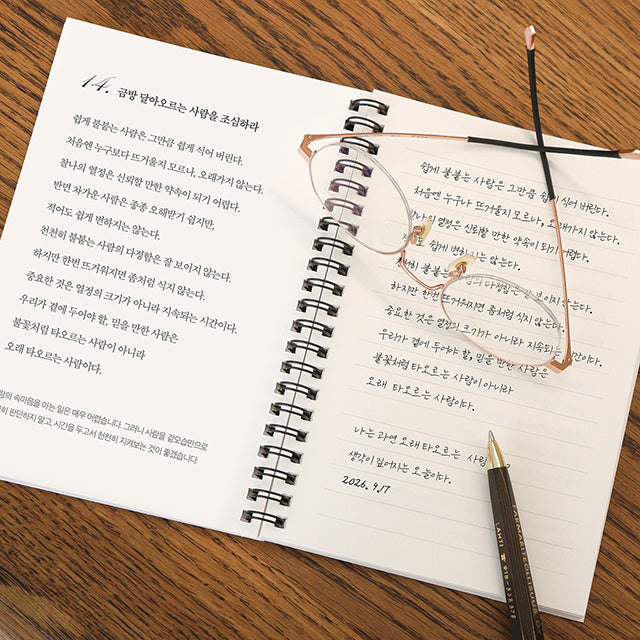 14. 금방 달아오르는 사람을 조심하라
쉽게 불붙는 사람은 그만큼 쉽게 식어 버린다.
처음엔 누구보다 뜨거울지 모르나, 오래가지 않는다.
찰나의 열정은 신뢰할 만한 약속이 되기 어렵다.
반면 차가운 사람은 종종 오해받기 쉽지만,
적어도 쉽게 변하지는 않는다.
천천히 불붙는 사람의 다정함은 잘 보이지 않는다.
하지만 한번 뜨거워지면 좀처럼 식지 않는다.
중요한 것은 열정의 크기가 아니라 지속되는 시간이다.
우리가 곁에 두어야 할, 믿을 만한 사람은
불꽃처럼 타오르는 사람이 아니라
오래 타오르는 사람이다.
속마음을 아는 일은 매우 어렵습니다. 그러니 사람을 겉모습만으로
판단하지 말고, 시간을 두고서 천천히 지켜보는 것이 좋겠습니다.
쉽게 불붙는 사람은 그만큼 쉽게 식어 버린다.
처음엔 누구나 뜨거울지 모르나, 오래가지 않는다.
열정은 신뢰할 만한 약속이 되기 어렵다.
쉽게 변하지는 않는다.
불붙는 다정함은 잘 보이지 않는다.
하지만 한번 뜨거워지면 좀처럼 식지 않는다.
중요한 것은 열정의 크기가 아니라 지속되는 시간이다.
우리가 곁에 두어야 할, 믿을 만한 사람은
불꽃처럼 타오르는 사람이 아니라
오래 타오르는 사람이다.
나는 과연 오래 타오르는 사람
생각이 깊어지는 오늘이다.
2026. 9. 17